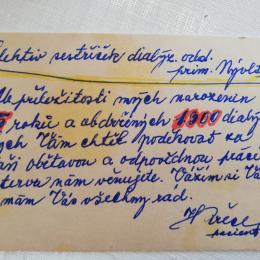 lektiv sestřiček dialýz. odd.
prim. Nývlt
příležitosti mých narozenin
roků a obdržených 1900 dialý
ych Vám chtěl poděkovat za
aši obětavou a odpovědnou práci
kterou nám věnujete. Vážím si Vá
mám Vás všechny rád.
pacient